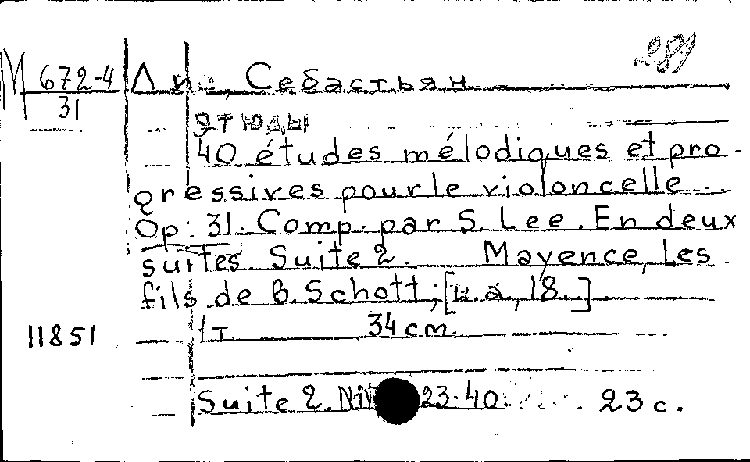 289
М 672-4
31
Ли, Себастьян
Этюды
40 études mélodiques et pro-
gressives pour le violoncelle.
Op. 31. Comp. par S. Lee. En deux
suites. Suite 2. Mayence, les
fils de B. Schott, [и.д., 18..]
11851 1 т 34 cm.
Suite 2. NN 23-40. 23 с.